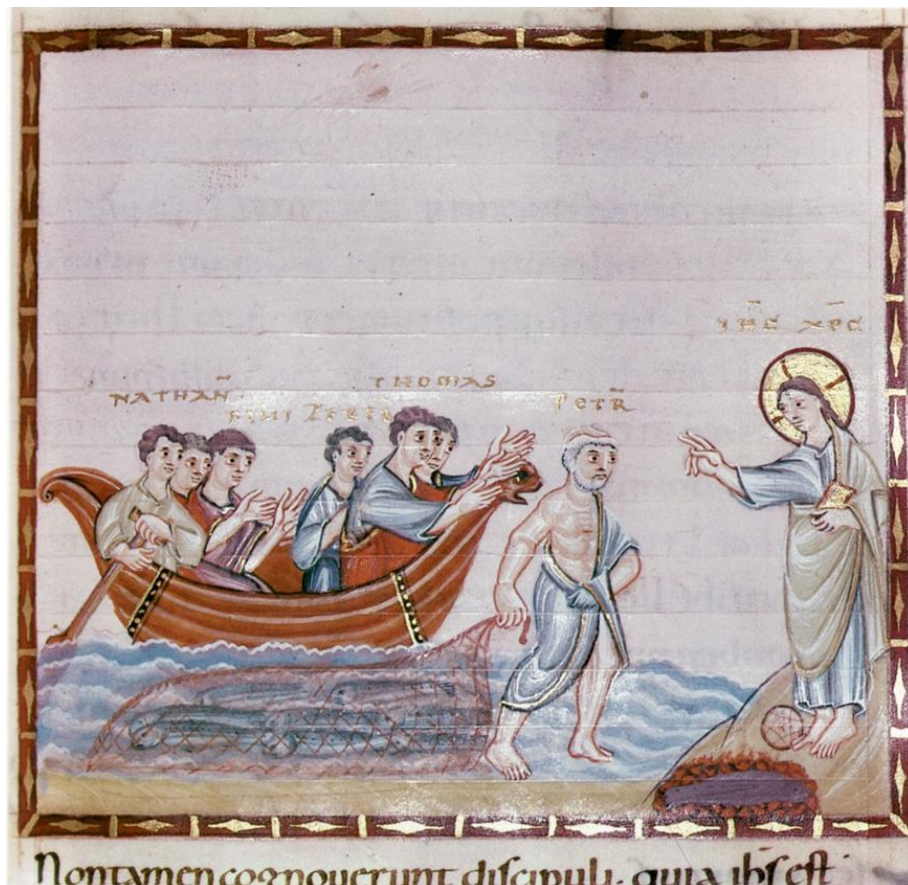 ιΗC ΧΡC
THOMAS
NATHAN̄
FILII ZEBED̄
PETR̄
Non tamen cognoverunt discipuli. quia ihs est